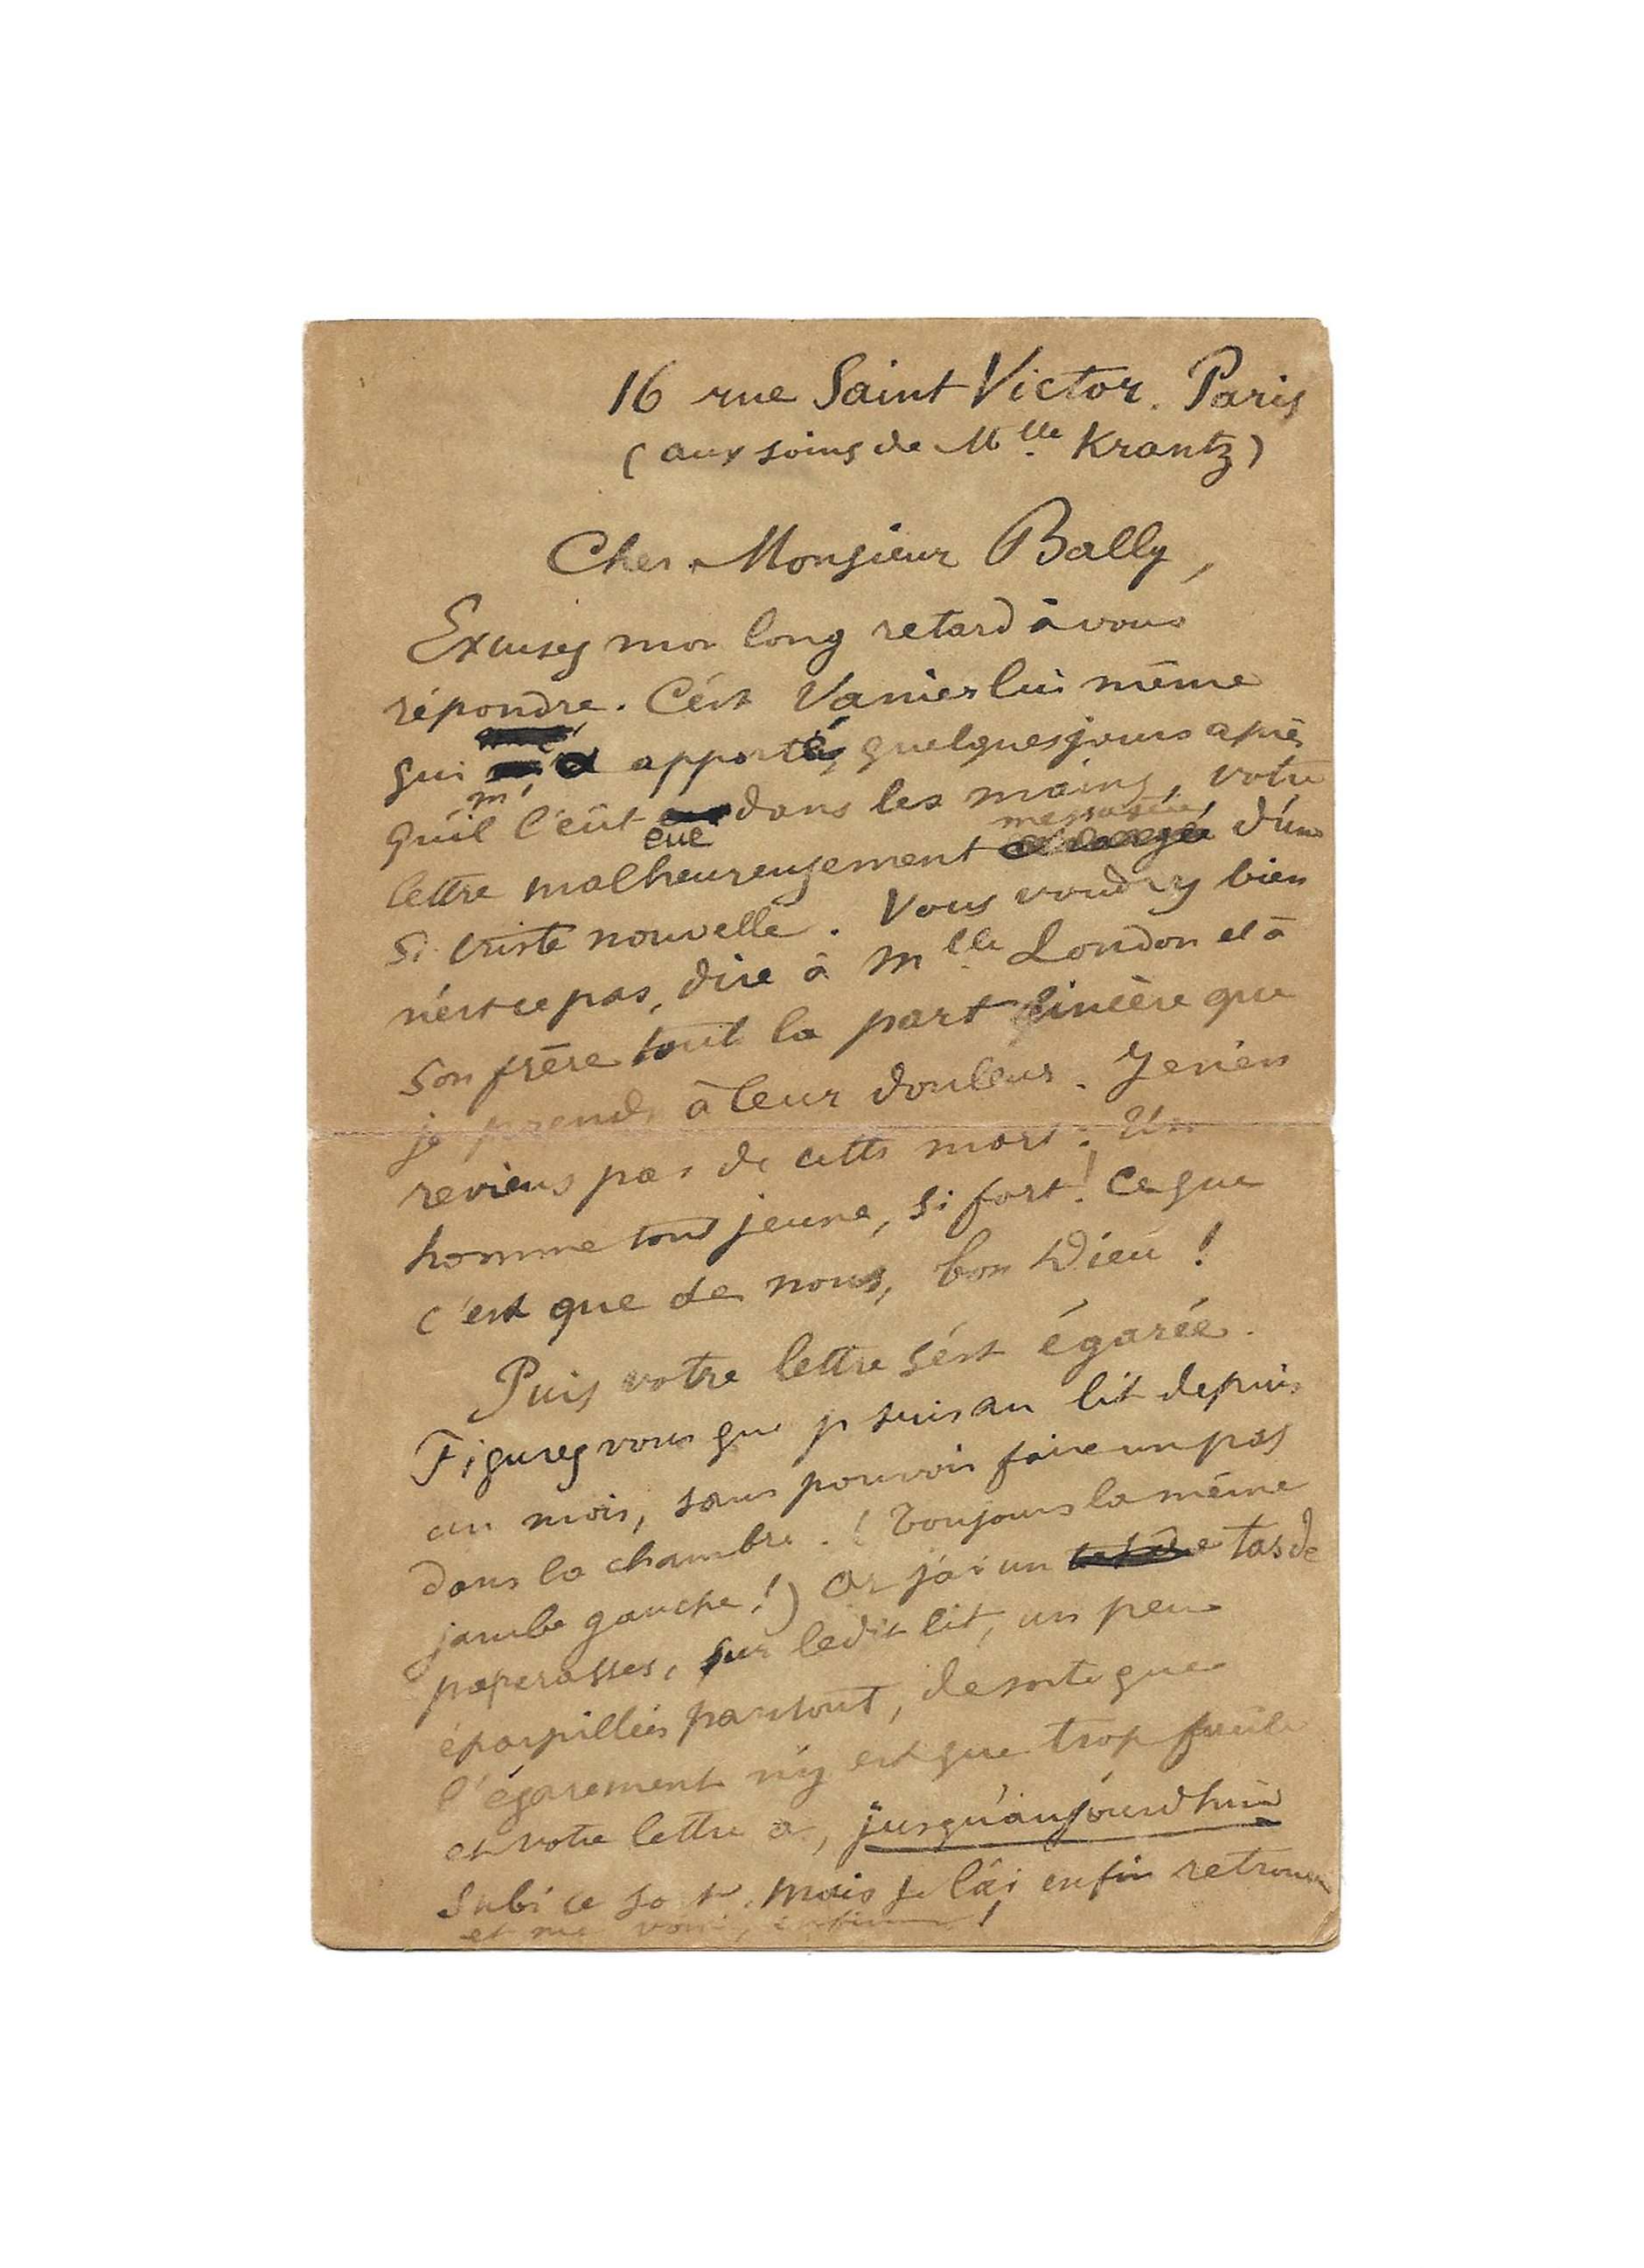 16 rue Saint Victor. Paris
(aux soins de Mlle Krantz)
Cher Monsieur Bally,
Excusez mon long retard à vous
répondre. C'est Vanier lui même
qui m'a apporté, quelques jours après
qu'il l'eût eue dans les mains, votre
lettre malheureusement messagère d'une
si triste nouvelle. Vous voudrez bien
n'est ce pas, dire à Mlle London et à
son frère tout la part sincère que
je prends à leur douleur. Je n'en
reviens pas de cette mort : Un
homme tout jeune, si fort! Ce que
c'est que de nous, bon Dieu !
Puis votre lettre s'est égarée.
Figurez vous que je suis au lit depuis
un mois, sans pouvoir faire un pas
dans la chambre. (Toujours la même
jambe gauche!) Or j'ai un tas de
paperasses, sur ledit lit, un peu
éparpillées partout, de sorte que
l'égarement n'y est que trop facile
et votre lettre a, jusqu'aujourd'hui
subi ce sort. Mais je l'ai enfin retrouvée
et me voici, enfin !